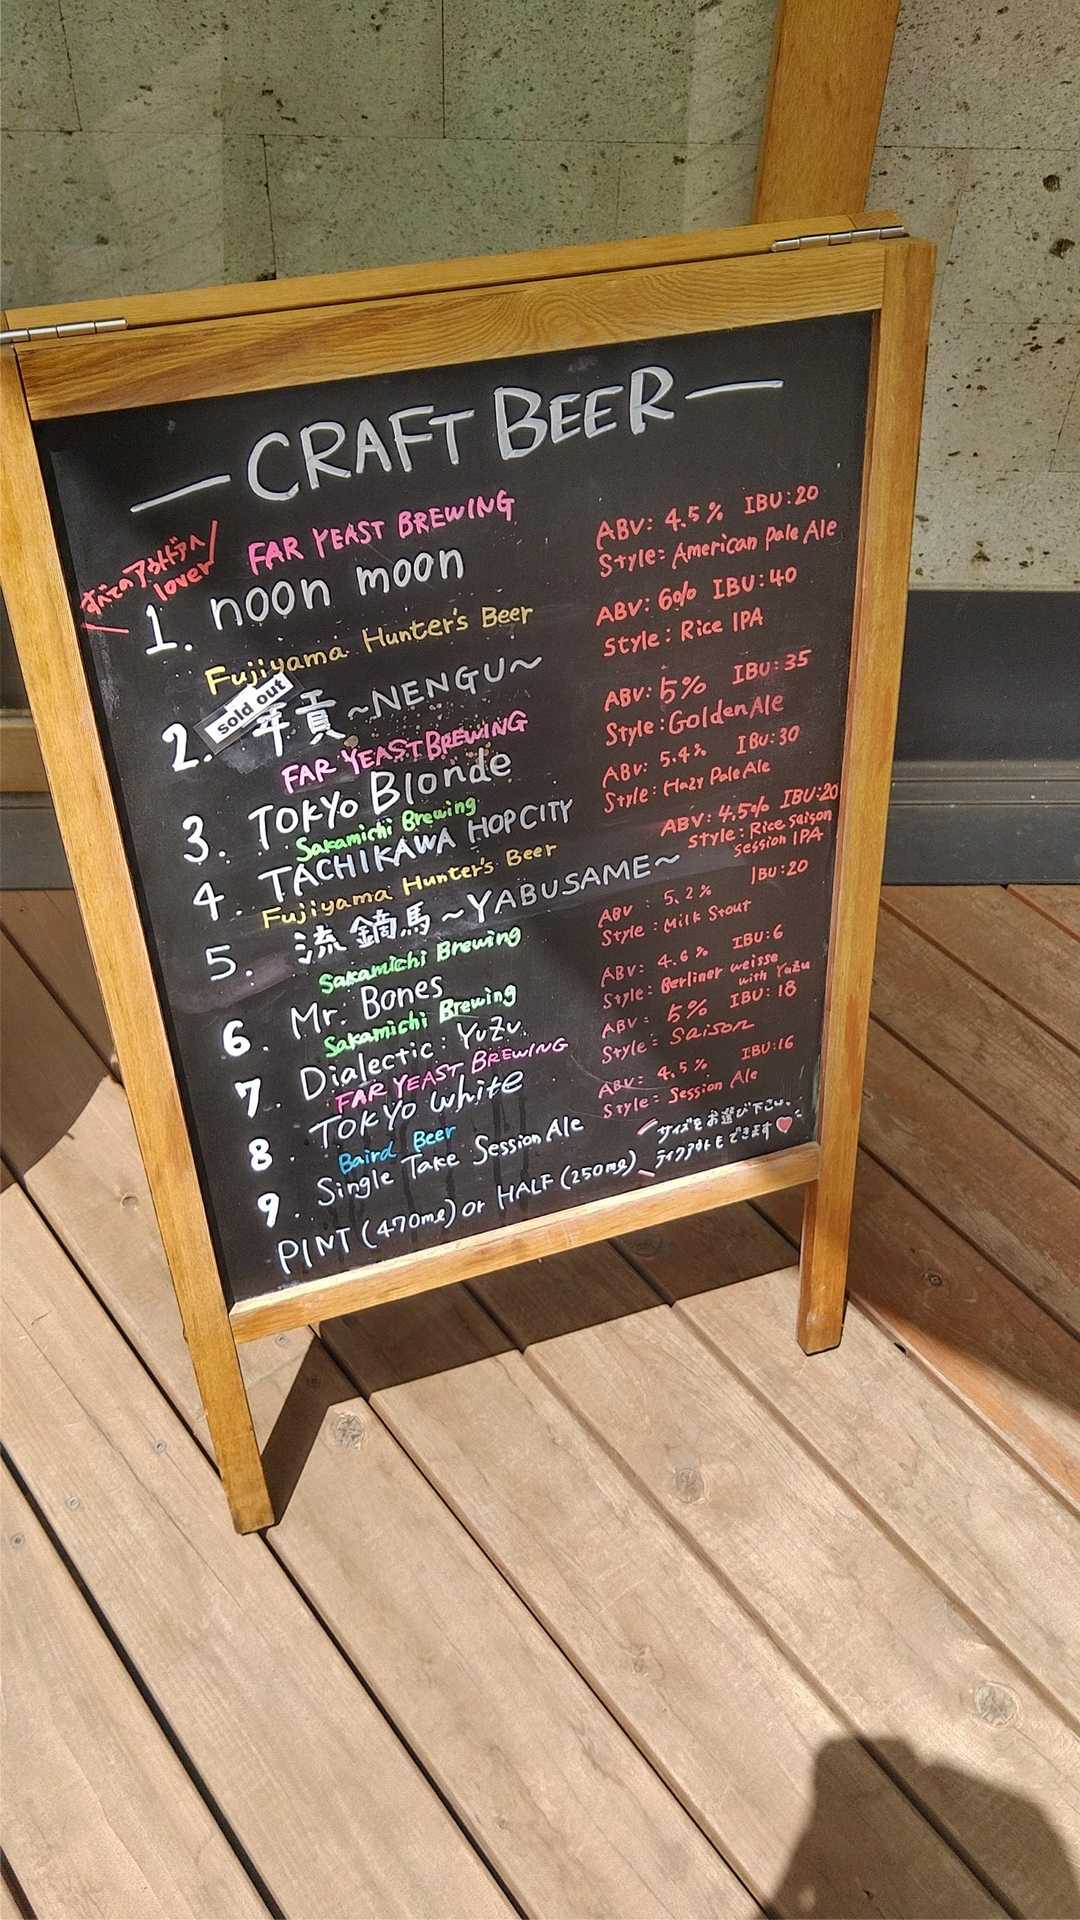 CRAFT BEER
すべてのアウトドアへ
lover
FAR YEAST BREWING
1. noon moon
ABV: 4.5% IBU: 20
Style: American Pale Ale
Fujiyama Hunter's Beer
sold out
2. 年貢 ~NENGU~
ABV: 6% IBU: 40
Style: Rice IPA
FAR YEAST BREWING
3. TOKYO Blonde
ABV: 5% IBU: 35
Style: Golden Ale
Sakamichi Brewing
4. TACHIKAWA HOP CITY
ABV: 5.4% IBU: 30
Style: Hazy Pale Ale
Fujiyama Hunter's Beer
5. 流鏑馬 ~YABUSAME~
ABV: 4.5% IBU: 20
Style: Rice saison
session IPA
Sakamichi Brewing
6. Mr. Bones
ABV: 5.2% IBU: 20
Style: Milk Stout
Sakamichi Brewing
7. Dialectic: Yuzu
ABV: 4.6% IBU: 6
Style: Berliner weisse
with Yuzu
FAR YEAST BREWING
8. TOKYO White
ABV: 5% IBU: 18
Style: Saison
Baird Beer
9. Single Take Session Ale
ABV: 4.5% IBU: 16
Style: Session Ale
PINT (470ml) or HALF (250ml)
サイズをお選び下さい。
テイクアウトもできます